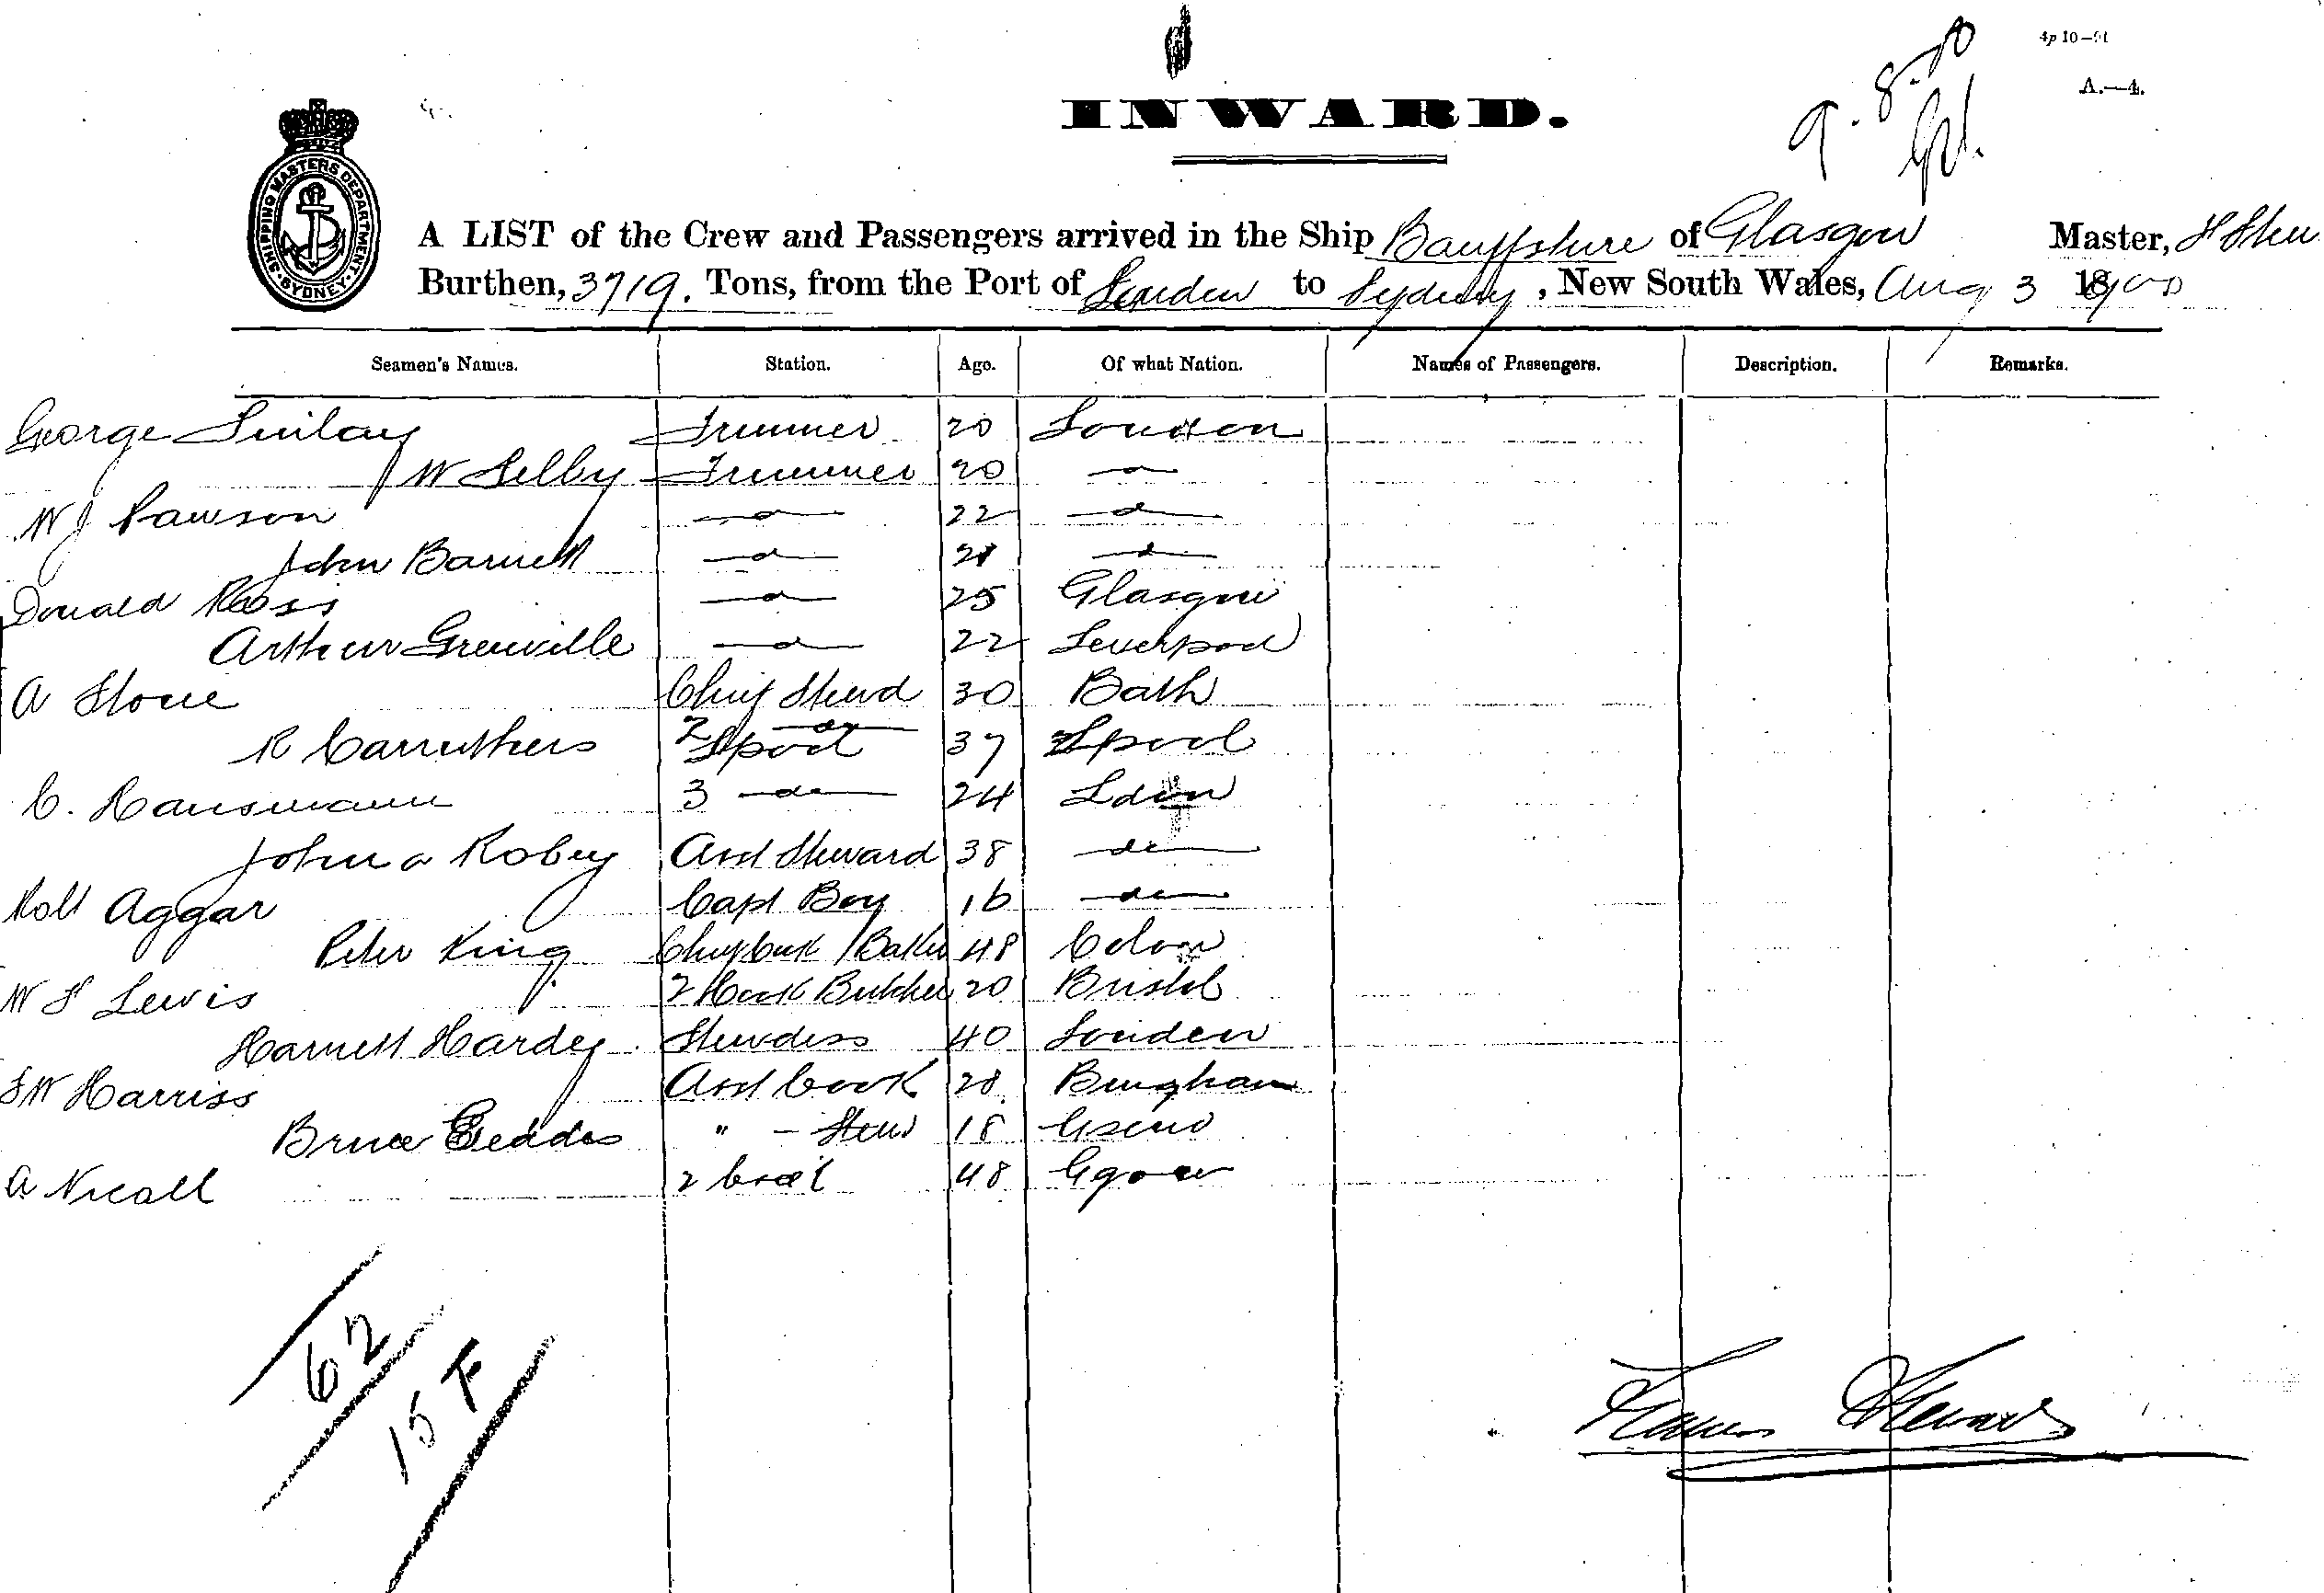 4p 10—91
A.—4.
9.8.00
INWARD.
SHIPPING MASTERS DEPARTMENT
SYDNEY
A LIST of the Crew and Passengers arrived in the Ship Banffshire of Glasgow Master, H Stew
Burthen, 3719. Tons, from the Port of London to Sydney, New South Wales, Aug 3 1900
Seamen's Names. Station. Age. Of what Nation. Names of Passengers. Description. Remarks.
George Finlay Trimmer 20 London
W Selby Trimmer 20 — d —
W J Pawson — d — 22 — d —
John Barnett — d — 21 — d —
Donald Ross — d — 25 Glasgow
Arthur Grenville — d — 22 Liverpool
A Stone Chief Stewd 30 Bath
R Carruthers 2 — do — 37 Lpool
C. Hansmann 3 — do — 24 Ldon
John A Robey Asst Steward 38 — do —
Robt Aggar Capt Boy 16 — do —
Peter King Chief Cook / Baker 48
W H Lewis 2 Cook Butcher 20 Bristol
Harriett Hardey Stewdess 40 London
F W Harriss Asst Cook 28 Bingham
Bruce Geddes " — Stew 18
A Nicoll 2 Cook 48 Ggow
62
15 F